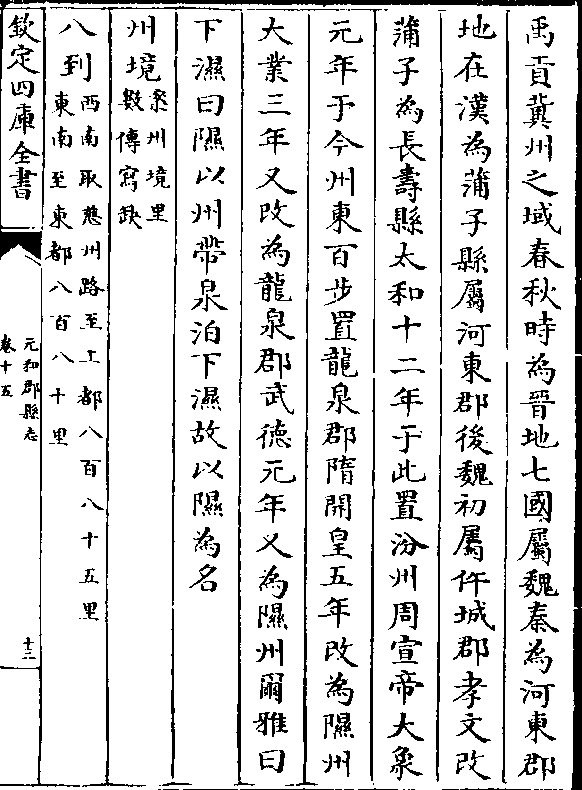 禹貢冀州之域春秋時為晉地七國屬魏秦為河東郡
地在漢為蒲子縣屬河東郡後魏初屬仵城郡孝文改
蒲子為長壽縣太和十二年于此置汾州周宣帝大象
元年于今州東百步置龍泉郡隋開皇五年改為隰州
大業三年又改為龍泉郡武德元年又為隰州爾雅曰
下濕曰隰以州帶泉泊下濕故以隰為名
州境案州境里
數傳寫缺
八到西南取慈州路至上都八百八十五里
東南至東都八百八十里
欽定四庫全書
元和郡縣志
卷十五
十三